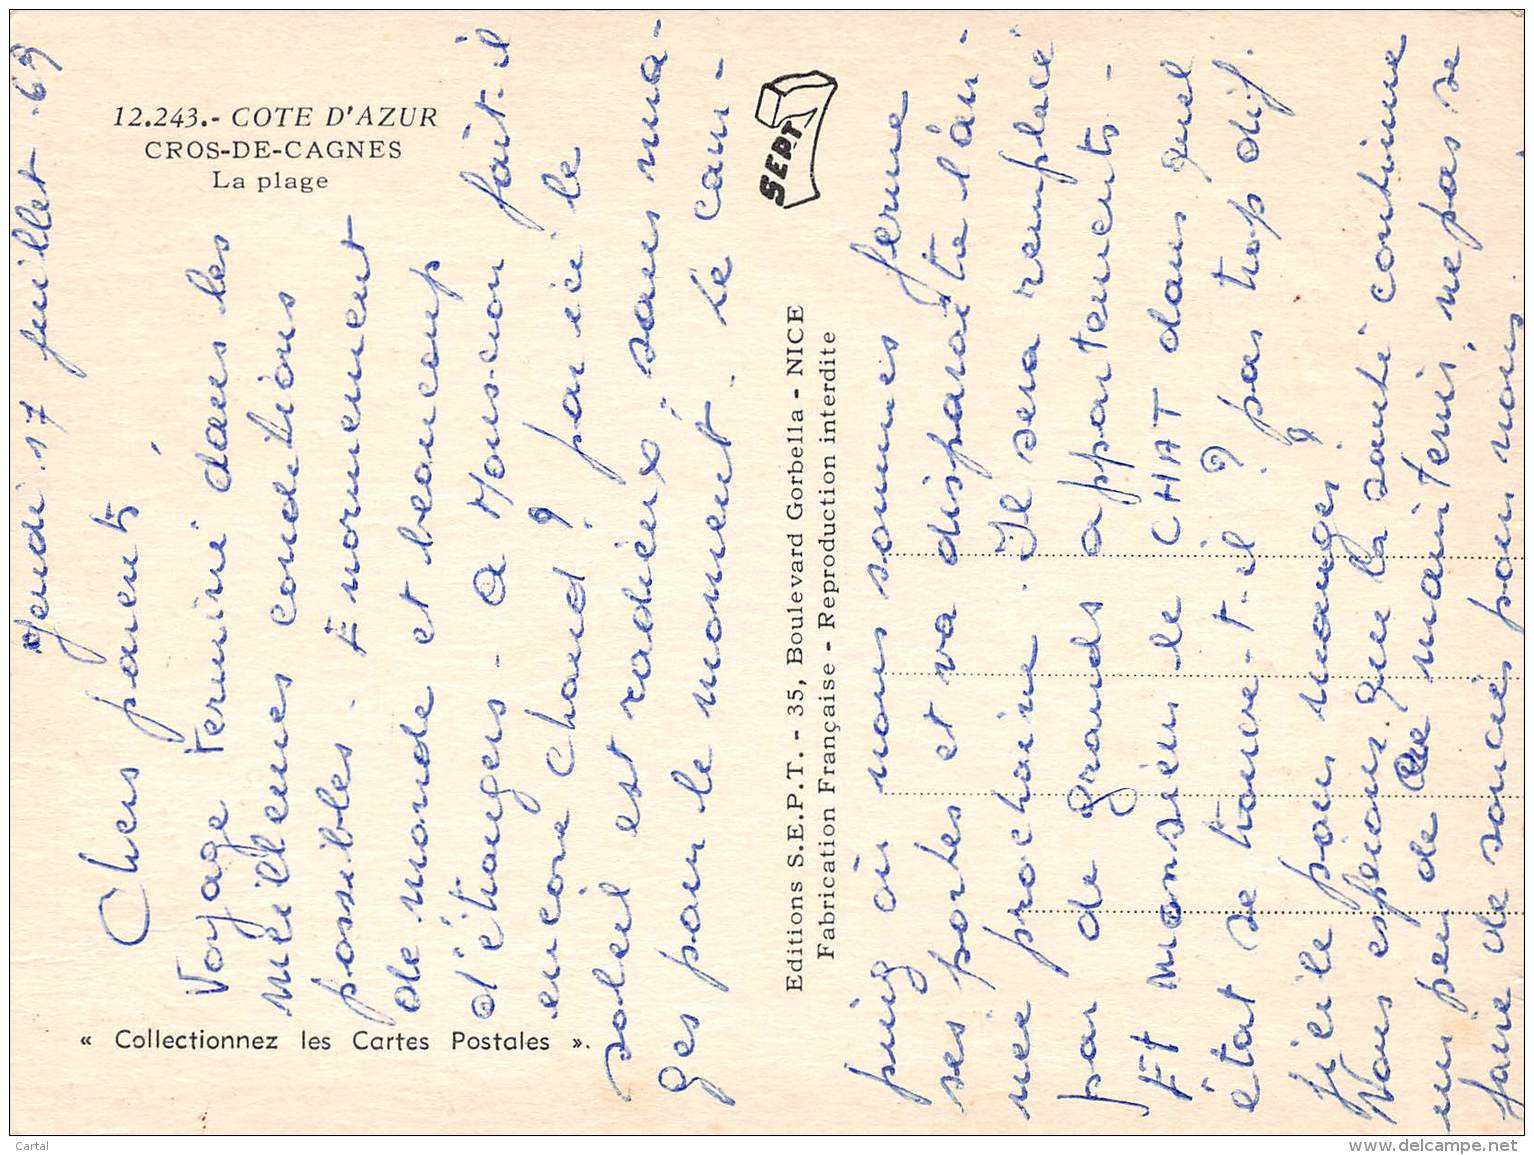 12.243.- COTE D'AZUR
CROS-DE-CAGNES
La plage
« Collectionnez les Cartes Postales ».
Jeudi 17 juillet .69
Chers parents
Voyage terminé dans les
meilleures conditions
possibles. Enormément
de monde et beaucoup
d'étrangers - à fait-il
encore chaud ? par ici le
soleil est radieux sans nua-
ges pour le moment. Le cam-
ping où nous sommes ferme
ses portes et va disparaître l'an-
née prochaine. Il sera remplacé
par de grands appartements -
Et monsieur le CHAT dans quel
état se trouve-t-il ? pas trop dif.
ficile pour manger ?
Nous espérons que la santé continue
un peu de maintenir, ne pas se
faire de soucis pour nous.
SEPT
Editions S.E.P.T. - 35, Boulevard Gorbella - NICE
Fabrication Française - Reproduction interdite
Cartal
www.delcampe.net